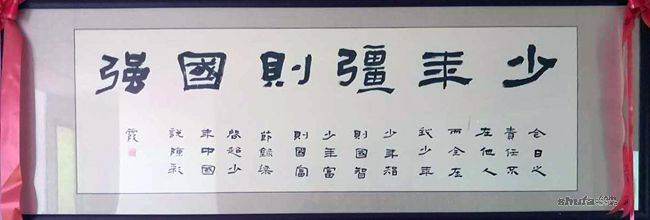 少年彊則國强
今日之
責任不
在他人
而全在
我少年
少年智
則國智
少年富
則國富
節録梁
啓超少
年中國
説陳彩
霞